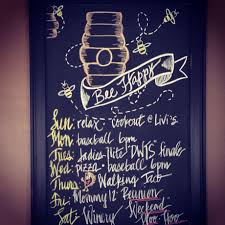 Bee Happy
Sun: relax - cookout @ Livi's
Mon: baseball 6pm
Tues: ladies nite DWTS finale
Wed: pizza - baseball 6pm
Thurs: Walking Taco
Fri: Mommy 12 Reunion
Sat: Winery Weekend
Hoo Hoo